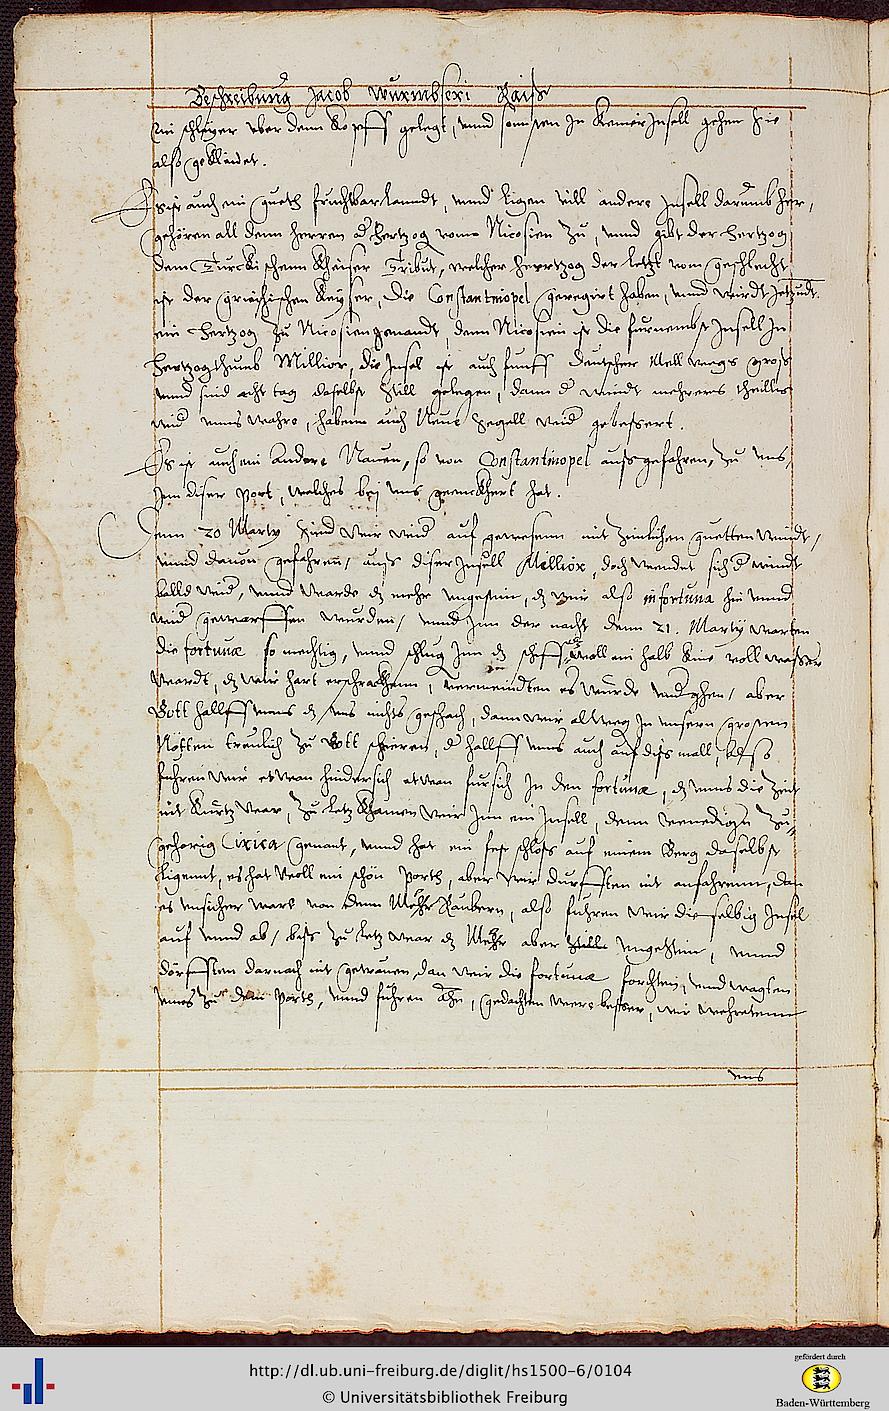 Beschreibung Jacob Wurmbseri Raiß
ein schleyer vber denn Kopff gelegt, vnnd sonnsten In keiner Insell gehen sie
also gekleidet.
Es ist auch ein gueth fruchtbar landt, vnnd ligen vill andere Insell darumb her,
gehören all dem herren od hertzog vonn Nicosien zu, vnnd gibt der hertzog
dem Türckischenn Kheiser Tribut, welcher hertzog der letzt vom geschlecht
ist der griechischen Keyser, die Constantinopel geregirt haben, vnnd wirdt Jetzundt
ein hertzog zu Nicosien genandt, dann Nicosien ist die furnembst Insell In
hertzogthumb Millior, die Insel ist auch funff deutscher Mell wegs groß
vnnd sind acht tag daselbst still gelegen, dann d windt mehrers theilles
wid vnns wahre, habenn auch Neue Segell wid gebessert.
Es ist auch ein andere Nauen, so von Constantinopel ausgefahren, zu vns,
Inn diser port, welches bey vns geanckhert hat.
Denn 20 Marty sind wir wid auf gewesenn mit zimlichen guetten windt,
vnnd dauon gefahrenn, auss diser Insell Melliox, doch wendet sich d windt
balld wid, vnnd warde dz mehr vngestim, dz wir also in fortuna hin vnnd
wid geworffen wurden, vnnd Inn der nacht denn 21. Marty warten
die fortunæ so mechtig, vnnd schlug Inn dz schiff woll ein halb Knie voll wasser
wardt, dz wir hart erschrackhenn, vermeindten es wurde vnndghen, aber
Gott hallff vnns dz vns nichts geschach, dann wir allweg In vnsern grossen
Nötten treulich zu Gott schrieren, d hallff vnns auch auf diß mall, also
fuhren wir etwan hindersich etwan fursich In den fortunæ, dz vnns die zeit
nit kurtz war, zu letz khamen wir Inn ein Insell, denn Venedigern zu„
gehorig Cirica genant, vnnd hat ein fest schloß auf einem Berg daselbst
ligennt, es hat woll ein schön Porth, aber wir durfften nit anfahrenn, dan
es vnsicher wart von denn Mehr Raubern, also fuhren wir dieselbig Insel
auf vnnd ab, biß zu letz war dz Mehr aber still vngestim, vnnd
dörfften darnach nit getrauen dan wir die fortunæ forchten, vnnd wagten
vnns zu dem Porth, vnnd fuhren ahn, gedachten were besser, wir wehretenn
vns
http://dl.ub.uni-freiburg.de/diglit/hs1500-6/0104
© Universitätsbibliothek Freiburg
gefördert durch
Baden-Württemberg